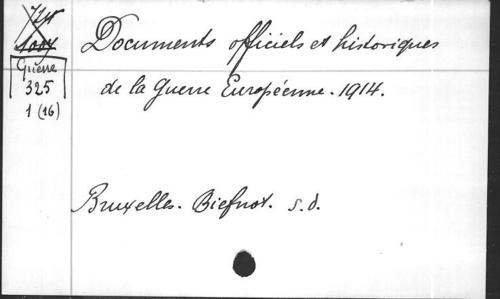 Guerre
325
1 (16)
Documents officiels et historiques
de la Guerre Européenne. 1914.
Bruxelles. Biefnot. s.d.